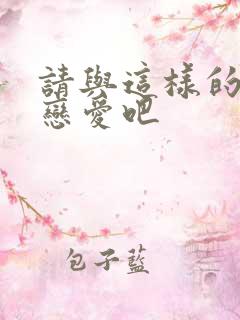 請與這樣的
戀愛吧
包子藍